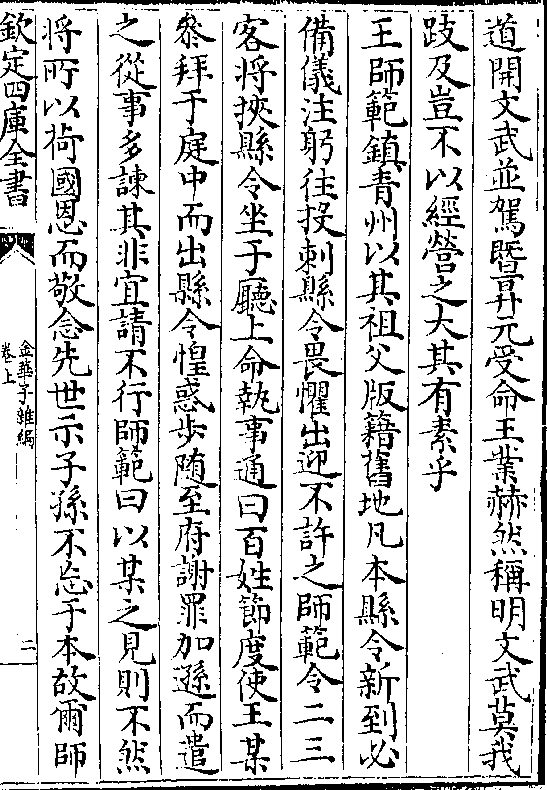 道開文武並駕暨昇元受命王業赫然稱明文武莫我
跂及豈不以經營之大其有素乎
王師範鎮青州以其祖父版籍舊地凡本縣令新到必
備儀注躬往投刺縣令畏懼出迎不許之師範令二三
客將挾縣令坐于廳上命執事通曰百姓節度使王某
叅拜于庭中而出縣令惶惑步随至府謝罪加遜而遣
之從事多諫其非宜請不行師範曰以某之見則不然
將所以荷國恩而敬念先世示子孫不忘于本故爾師
欽定四庫全書
金華子雜編
卷上
二